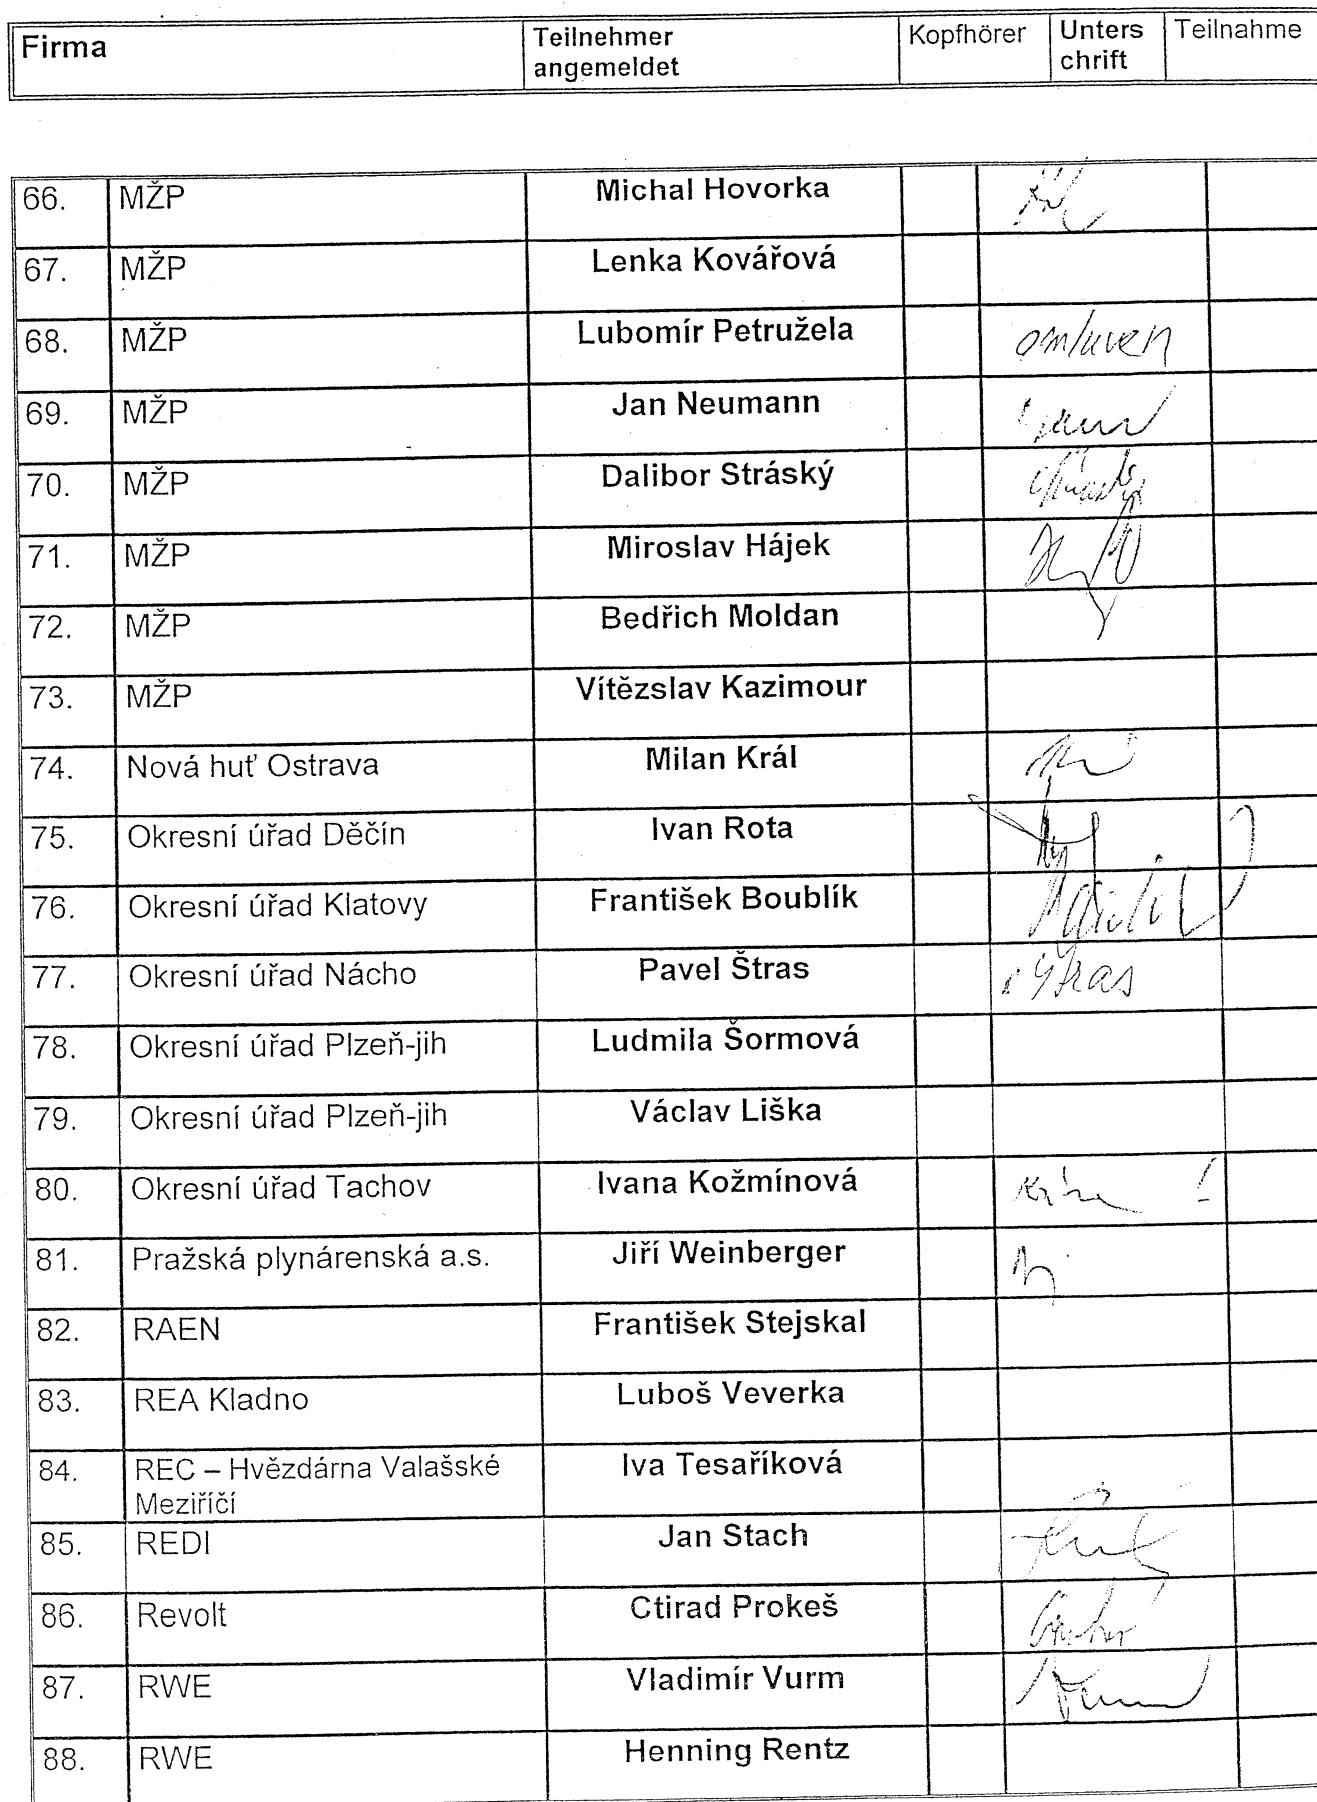 Firma Teilnehmer Kopfhörer Unters Teilnahme
angemeldet chrift
66. MŽP Michal Hovorka
67. MŽP Lenka Kovářová
68. MŽP Lubomír Petružela omluven
69. MŽP Jan Neumann
70. MŽP Dalibor Stráský
71. MŽP Miroslav Hájek
72. MŽP Bedřich Moldan
73. MŽP Vítězslav Kazimour
74. Nová huť Ostrava Milan Král
75. Okresní úřad Děčín Ivan Rota
76. Okresní úřad Klatovy František Boublík
77. Okresní úřad Nácho Pavel Štras
78. Okresní úřad Plzeň-jih Ludmila Šormová
79. Okresní úřad Plzeň-jih Václav Liška
80. Okresní úřad Tachov Ivana Kožmínová
81. Pražská plynárenská a.s. Jiří Weinberger
82. RAEN František Stejskal
83. REA Kladno Luboš Veverka
84. REC – Hvězdárna Valašské Iva Tesaříková
Meziříčí
85. REDI Jan Stach
86. Revolt Ctirad Prokeš
87. RWE Vladimír Vurm
88. RWE Henning Rentz